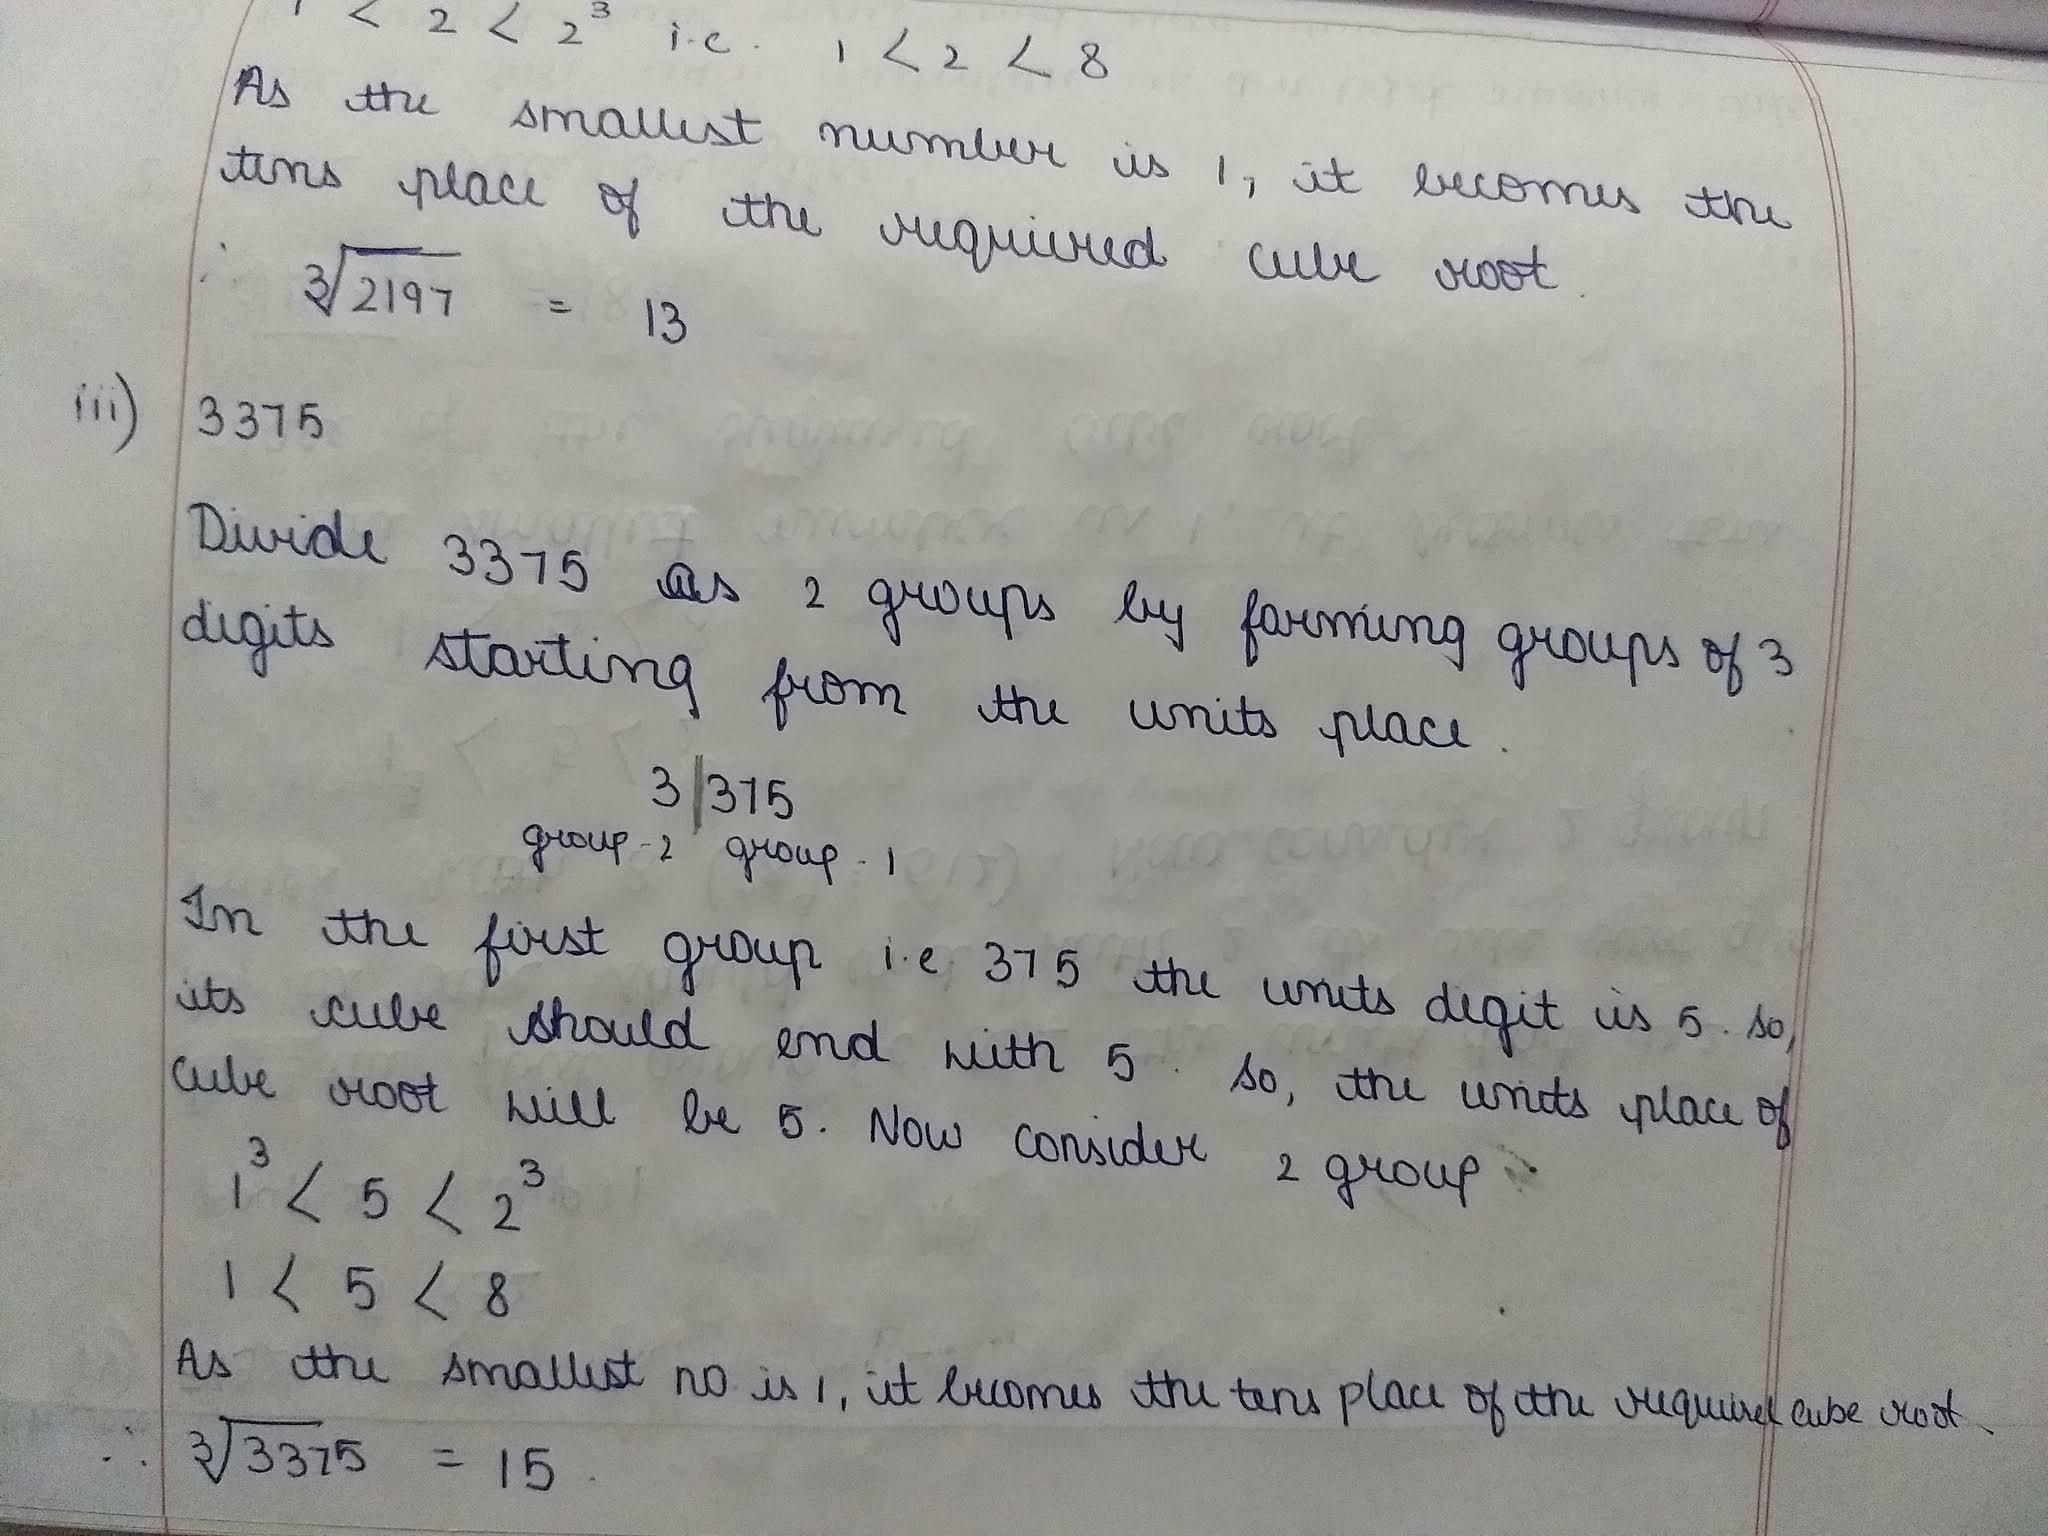 1 < 2 < 2³ i.e. 1 < 2 < 8
As the smallest number is 1, it becomes the
tens place of the required cube root.
∴ ∛2197 = 13
iii) 3375
Divide 3375 as 2 groups by forming groups of 3
digits starting from the units place.
3|375
group-2 group-1
In the first group i.e 375 the units digit is 5. so,
its cube should end with 5. so, the units place of
cube root will be 5. Now consider 2 group
1³ < 5 < 2³
1 < 5 < 8
As the smallest no is 1, it becomes the tens place of the required cube root.
∴ ∛3375 = 15.